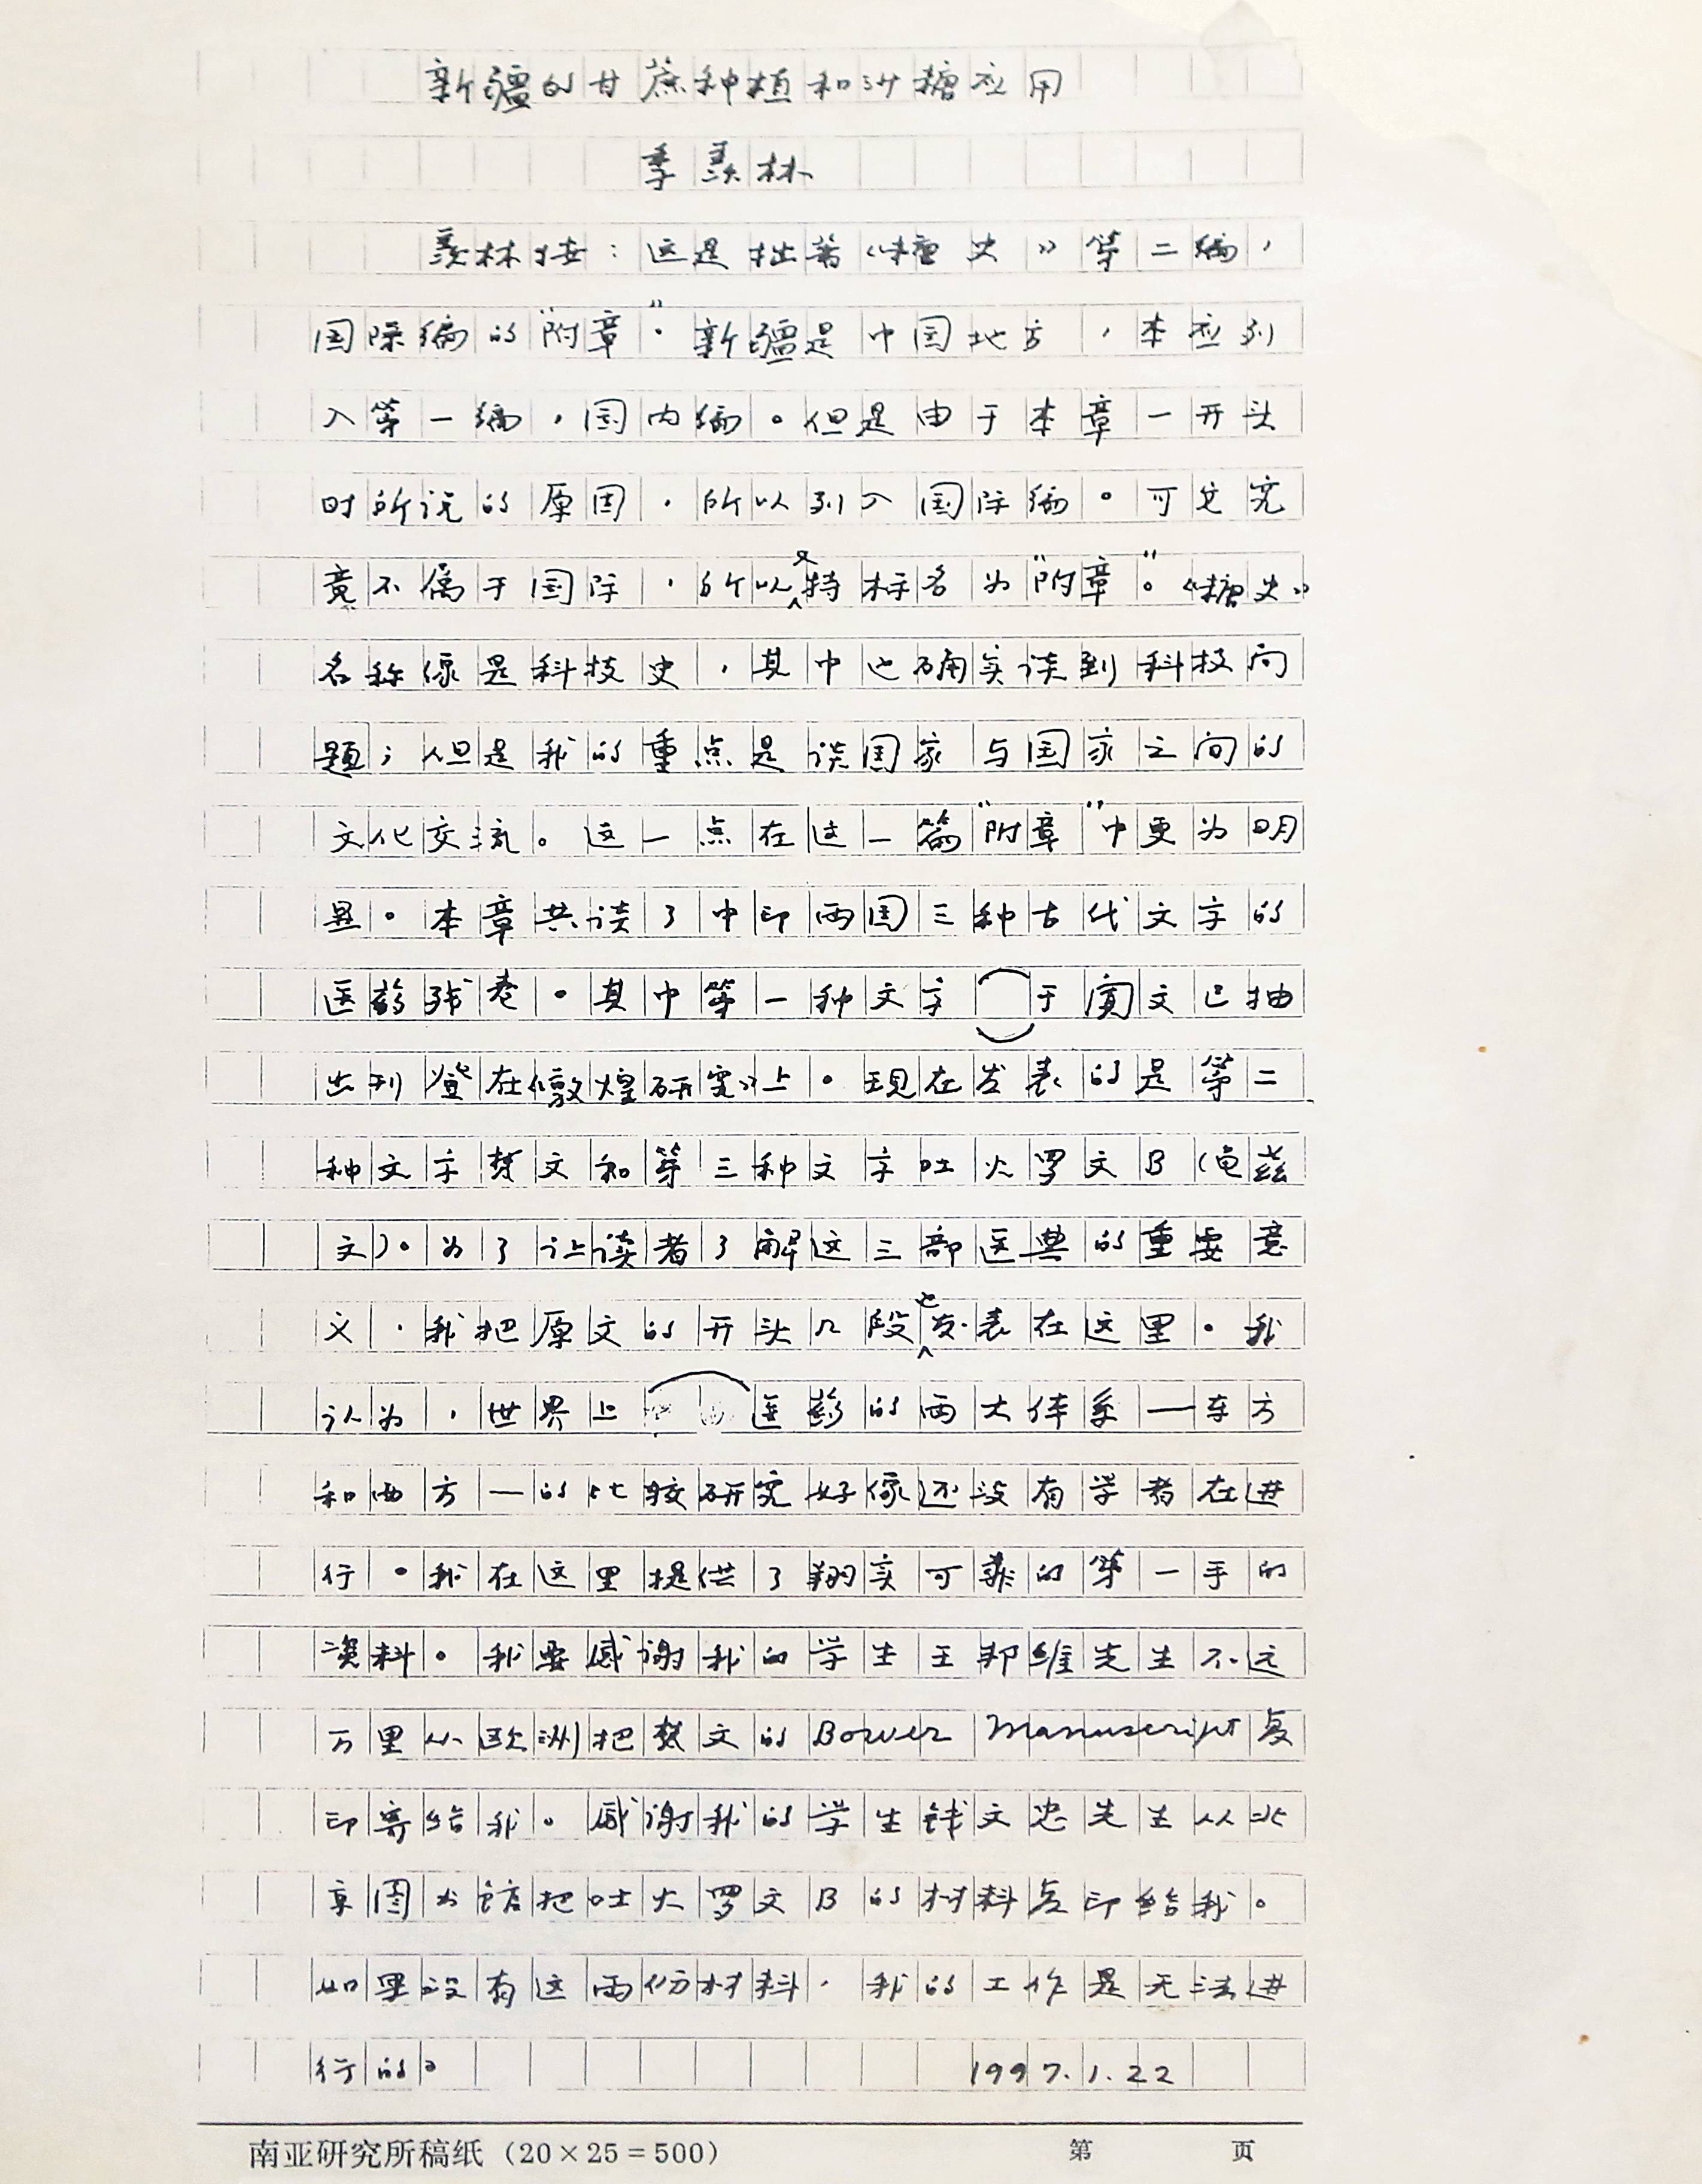 新疆的甘蔗种植和沙糖应用
季羡林
羡林按：这是拙著《糖史》第二编，
国际编的“附章”。新疆是中国地方，本应列
入第一编，国内编。但是由于本章一开头
时所说的原因，所以列入国际编。可它究
竟不属于国际，所以又特标名为“附章”。《糖史》
名称像是科技史，其中也确实谈到科技问
题；但是我的重点是谈国家与国家之间的
文化交流。这一点在这一篇“附章”中更为明
显。本章共谈了中印两国三种古代文字的
医药残卷。其中第一种文字于阗文已抽
出刊登在《敦煌研究》上。现在发表的是第二
种文字梵文和第三种文字吐火罗文B（龟兹
文）。为了让读者了解这三部医典的重要意
义，我把原文的开头几段也发表在这里。我
认为，世界上医药的两大体系——东方
和西方——的比较研究好像还没有学者在进
行。我在这里提供了翔实可靠的第一手的
资料。我要感谢我的学生王邦维先生不远
万里从欧洲把梵文的Bower Manuscript复
印寄给我。感谢我的学生钱文忠先生从北
京图书馆把吐火罗文B的材料复印给我。
如果没有这两份材料，我的工作是无法进
行的。 1997.1.22
南亚研究所稿纸（20×25=500） 第 页